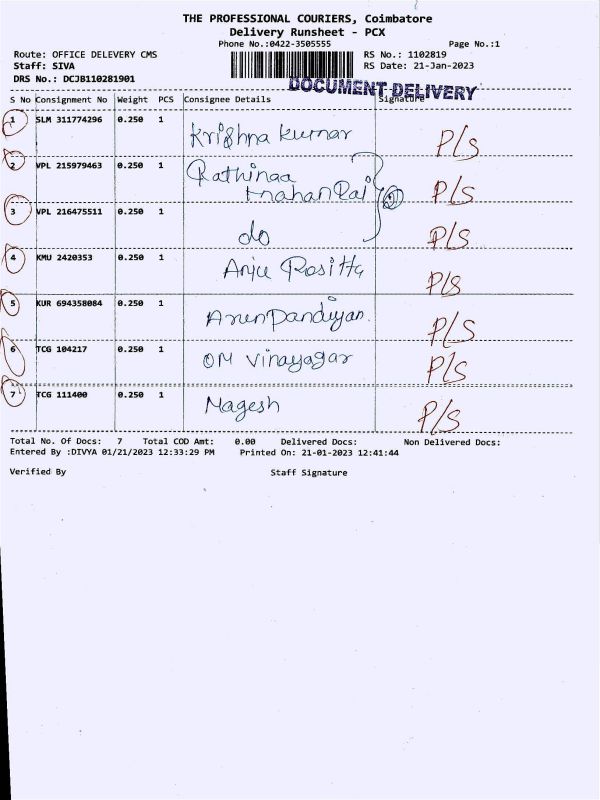 THE PROFESSIONAL COURIERS, Coimbatore
Delivery Runsheet - PCX
Phone No.:0422-3505555 Page No.:1
Route: OFFICE DELEVERY CMS RS No.: 1102819
Staff: SIVA RS Date: 21-Jan-2023
DRS No.: DCJB110281901
DOCUMENT DELIVERY
S No Consignment No Weight PCS Consignee Details Signature
1 SLM 311774296 0.250 1 Krishna kumar P/S
2 VPL 215979463 0.250 1 Rathinaa
P/S
3 VPL 216475511 0.250 1 do P/S
4 KMU 2420353 0.250 1 Anju Rositta P/S
5 KUR 694358084 0.250 1 Arunpandiyan. P/S
6 TCG 104217 0.250 1 OM vinayagar P/S
7 TCG 111400 0.250 1 Magesh P/S
Total No. Of Docs: 7 Total COD Amt: 0.00 Delivered Docs: Non Delivered Docs:
Entered By :DIVYA 01/21/2023 12:33:29 PM Printed On: 21-01-2023 12:41:44
Verified By Staff Signature